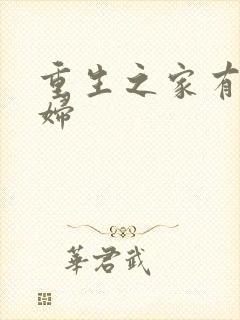 重生之家有
婦
華君武